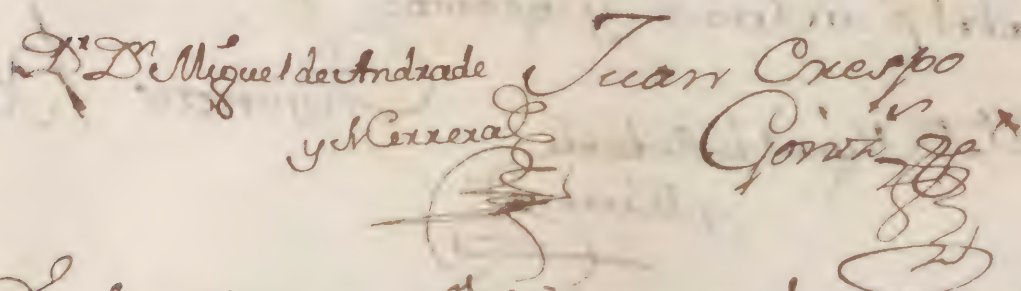 Dr. Dn. Miguel de Andrade
y Herrera
Juan Crespo